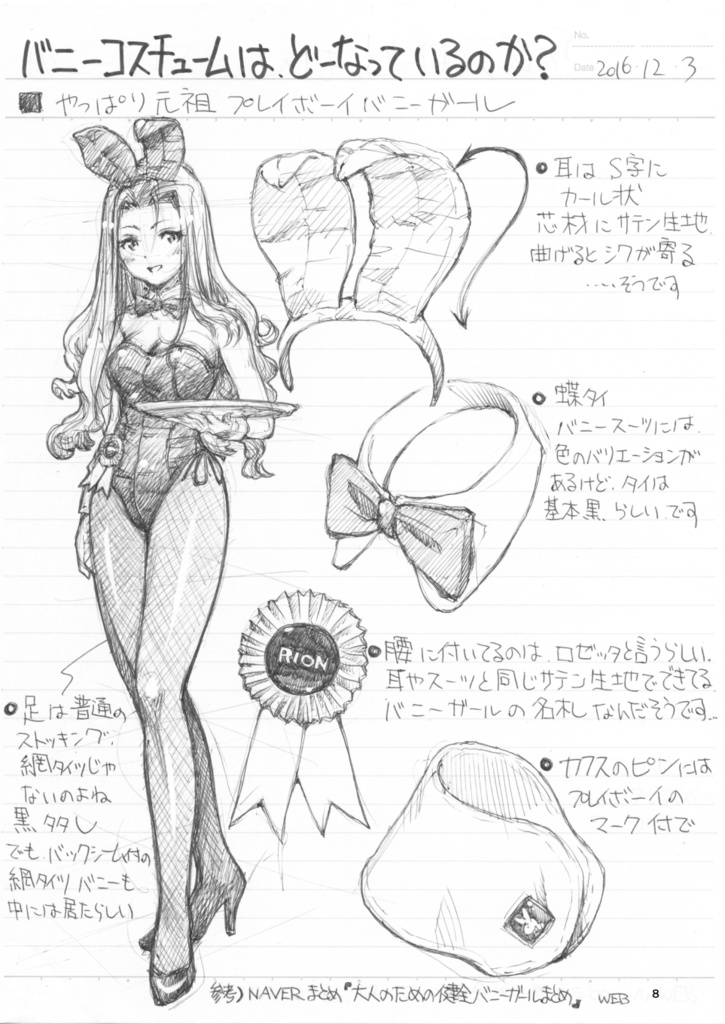 バニーコスチュームは、どーなっているのか？
No.
Date 2016・12・3
■ やっぱり元祖 プレイボーイバニーガール
●耳は S字に
カール状
芯材にサテン生地
曲げるとシワが寄る
……そうです
●蝶タイ
バニースーツには、
色のバリエーションが
あるけど、タイは
基本黒、らしいです
RION
●腰に付いてるのは、ロゼッタと言うらしい、
耳やスーツと同じサテン生地でできてる
バニーガールの名札なんだそうです…
●足は普通の
ストッキング、
網タイツじゃ
ないのよね
黒タタし
でも、バックシーム付の
網タイツバニーも
中には居たらしい
●カフスのピンには
プレイボーイの
マーク付で
参考）NAVERまとめ『大人のための健全バニーガールまとめ』 WEB
8